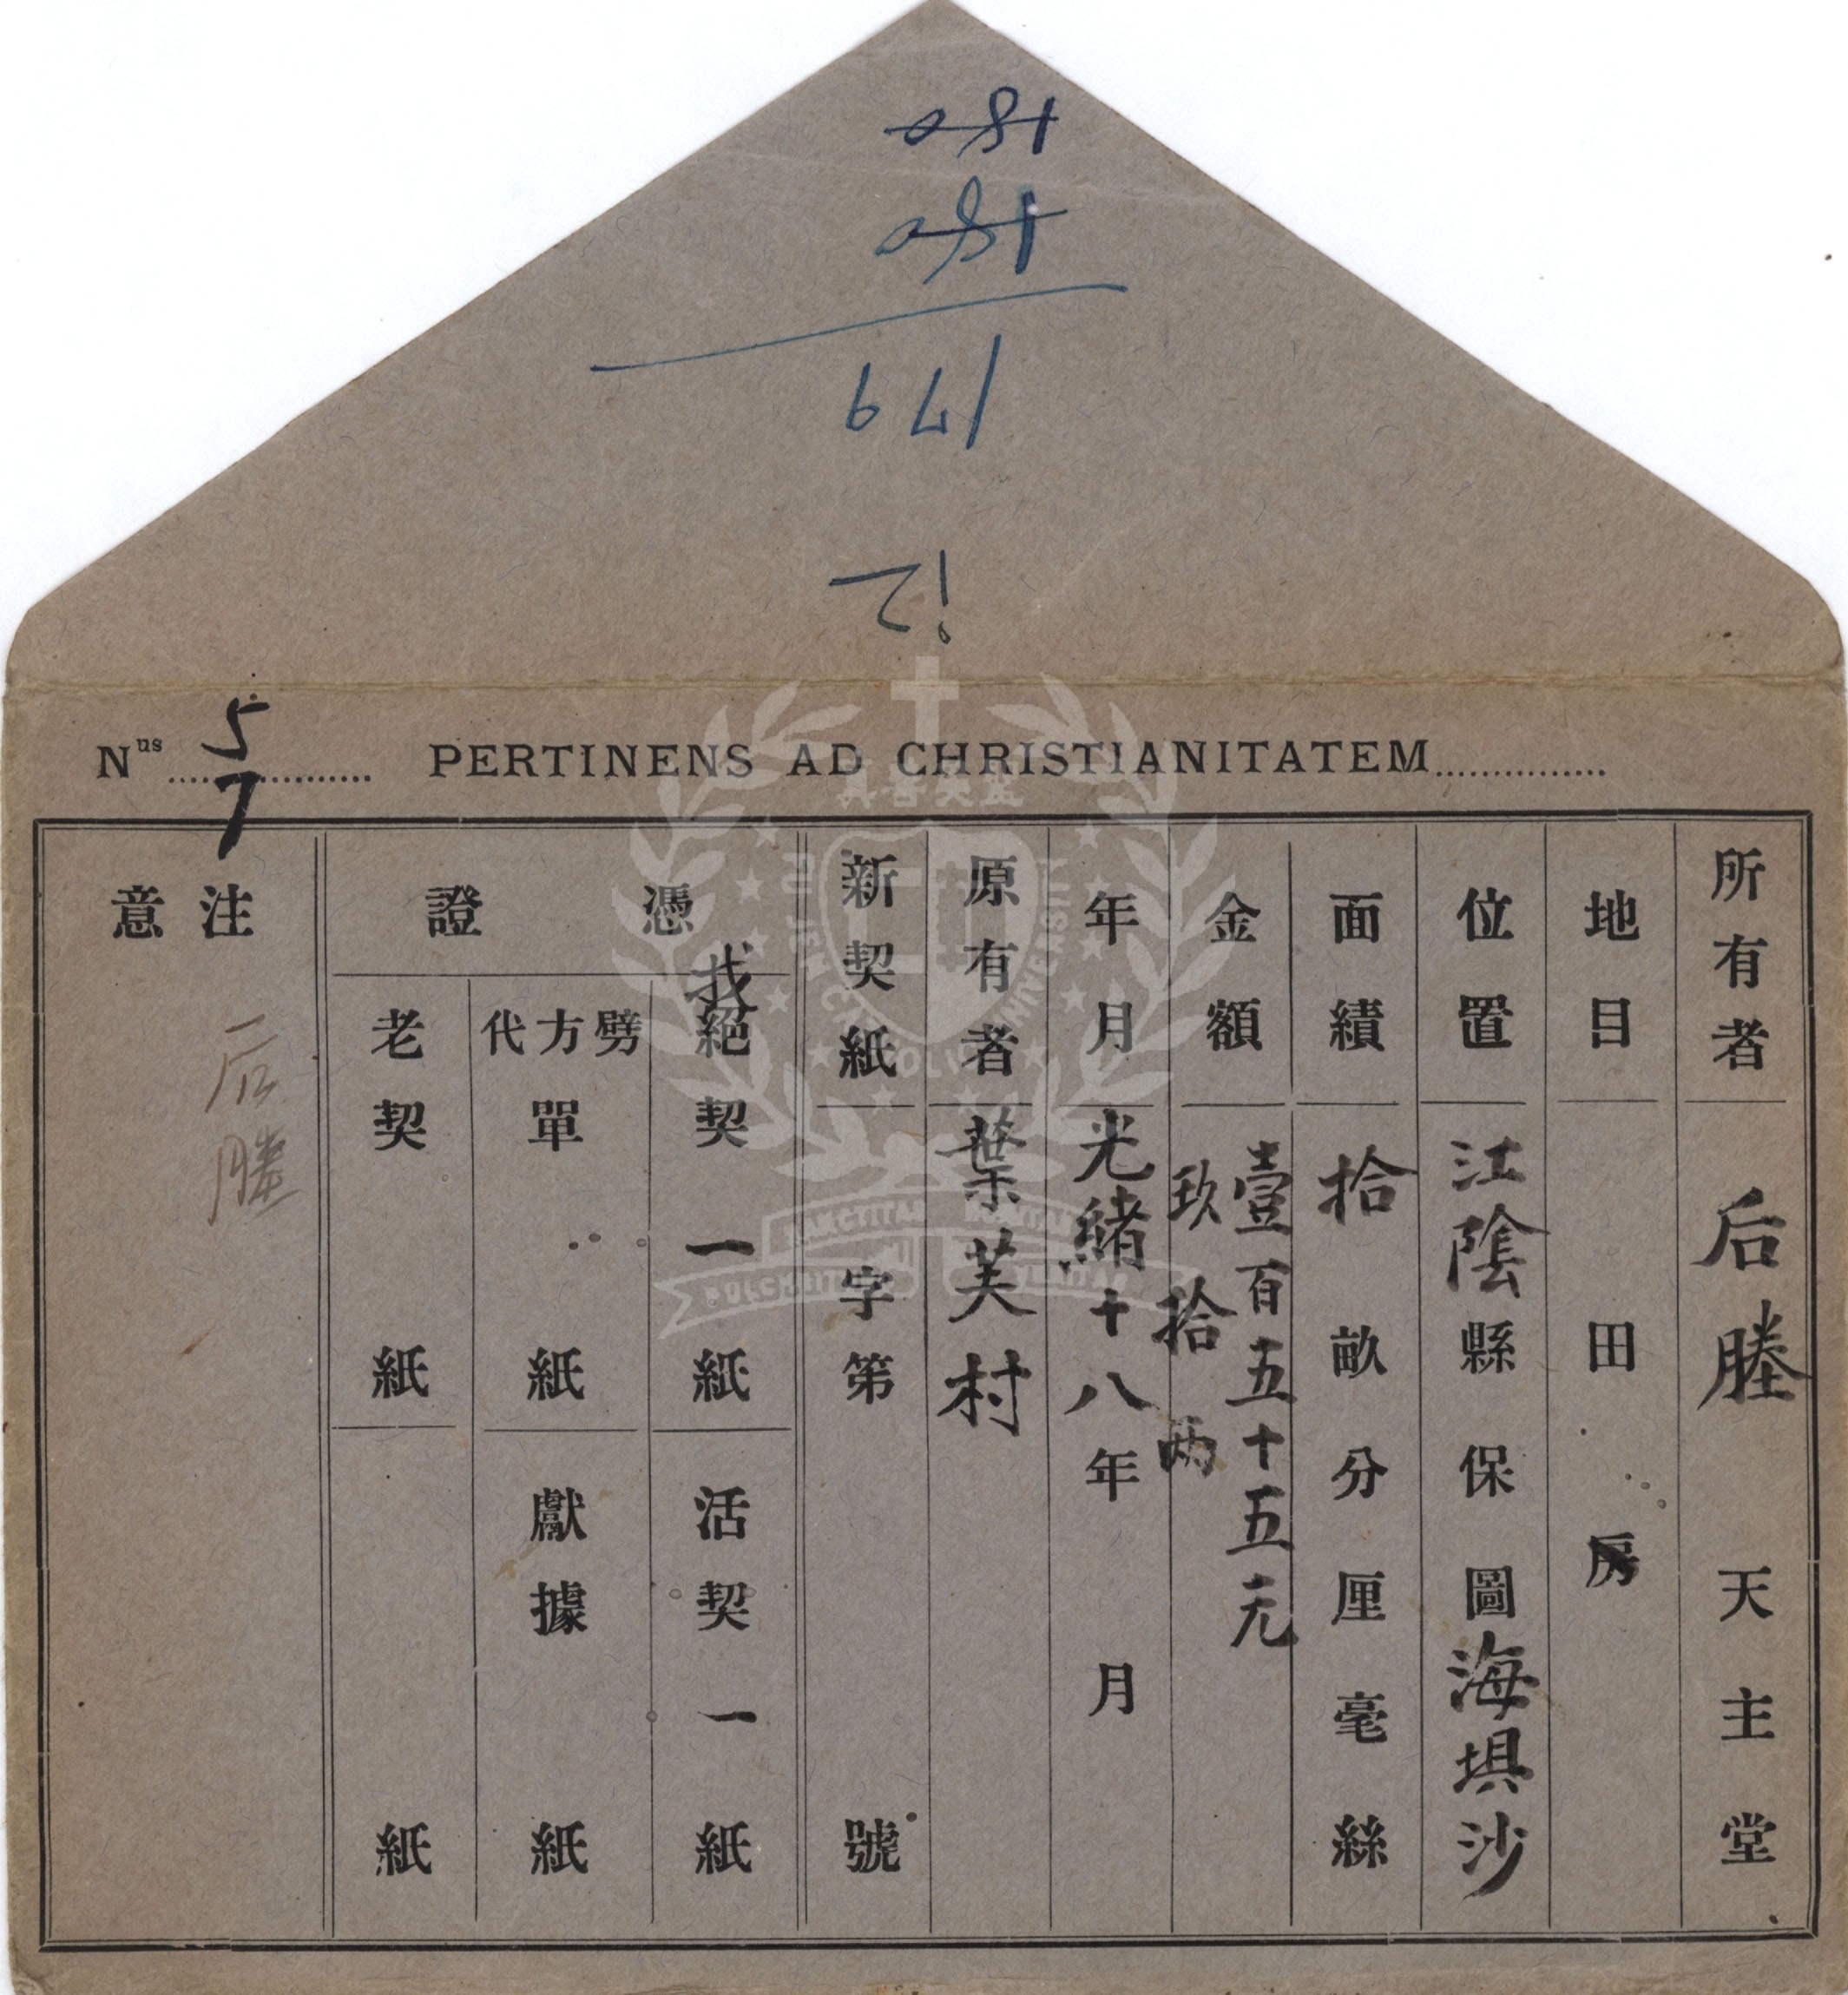 180
180
179
12
Nus 5 PERTINENS AD CHRISTIANITATEM
7
所有者 后塍 天主堂
地目 田 房
位置 江陰縣 保 圖 海埧沙
面績 拾 畝 分 厘 毫 絲
金額 壹百五十五元
玖拾两
年月 光緒十八年 月
原有者 葉芙村
新契紙 字第 號
憑證
找絕契 一 紙
活契 一 紙
劈方代單 紙
獻據 紙
老契 紙
紙
注意
后塍